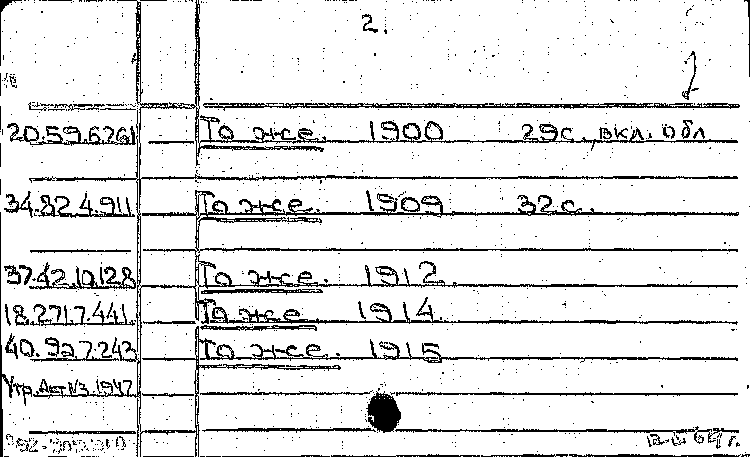 2.
20.59.6.261 То же. 1900 29с., вкл. обл
34.82.4.911 То же. 1909 32с.
37.42.10.128 То же. 1912.
18.271.7.441. То же 1914
40.92.7.243 То же. 1915
Утр. Акт №3. 1947